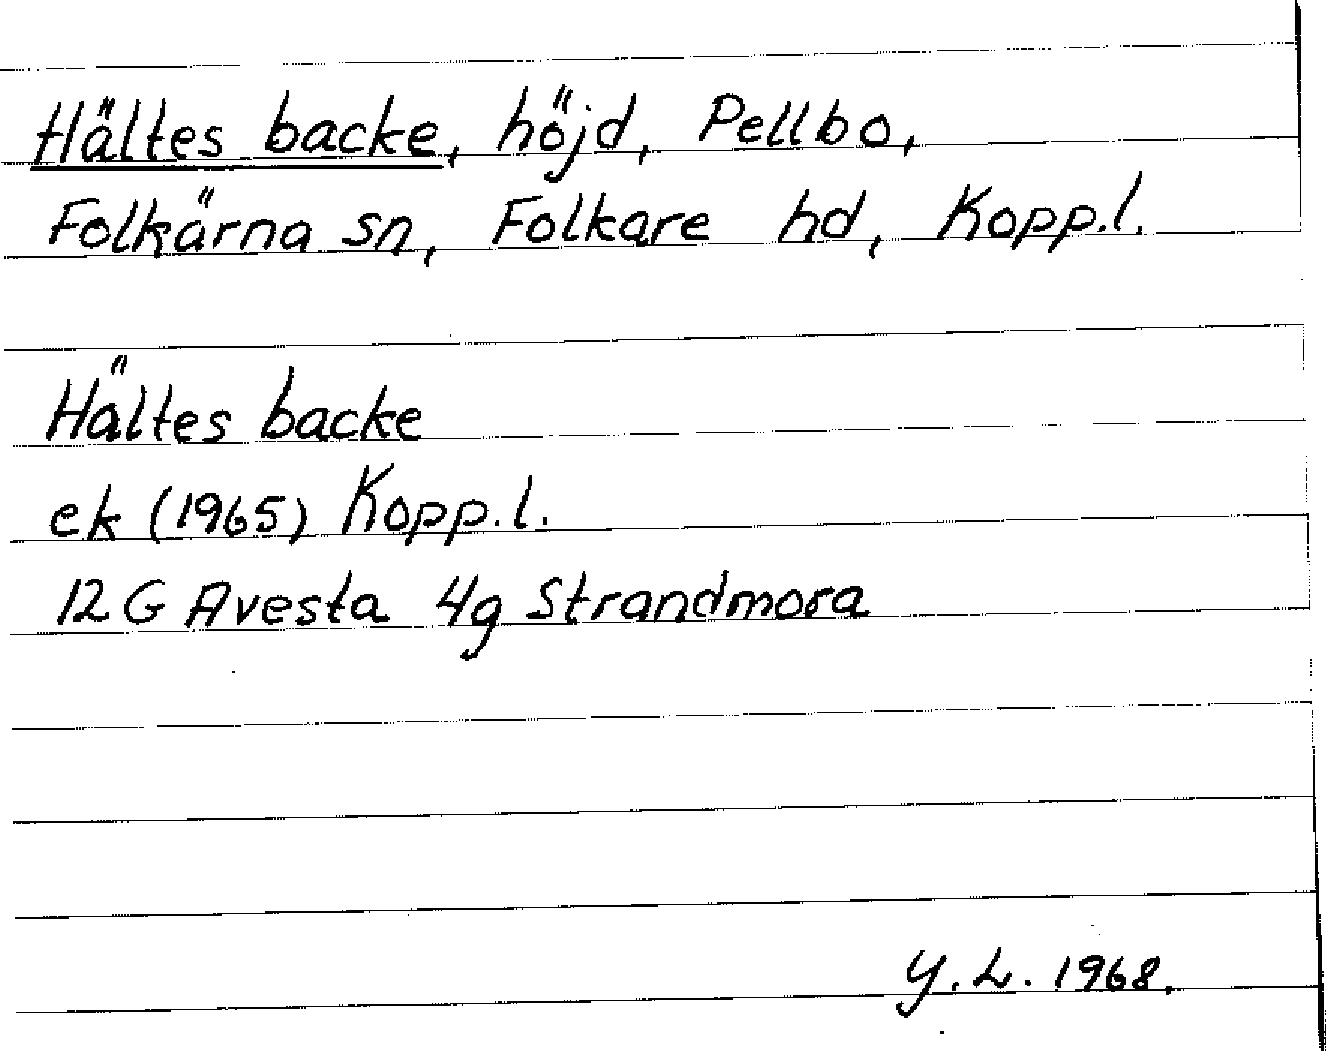 Hältes backe, höjd, Pellbo,
Folkärna sn, Folkare hd, Kopp.l.
Hältes backe
ek (1965) Kopp.l.
12 G Avesta 4g Strandmora
Y.L. 1968.